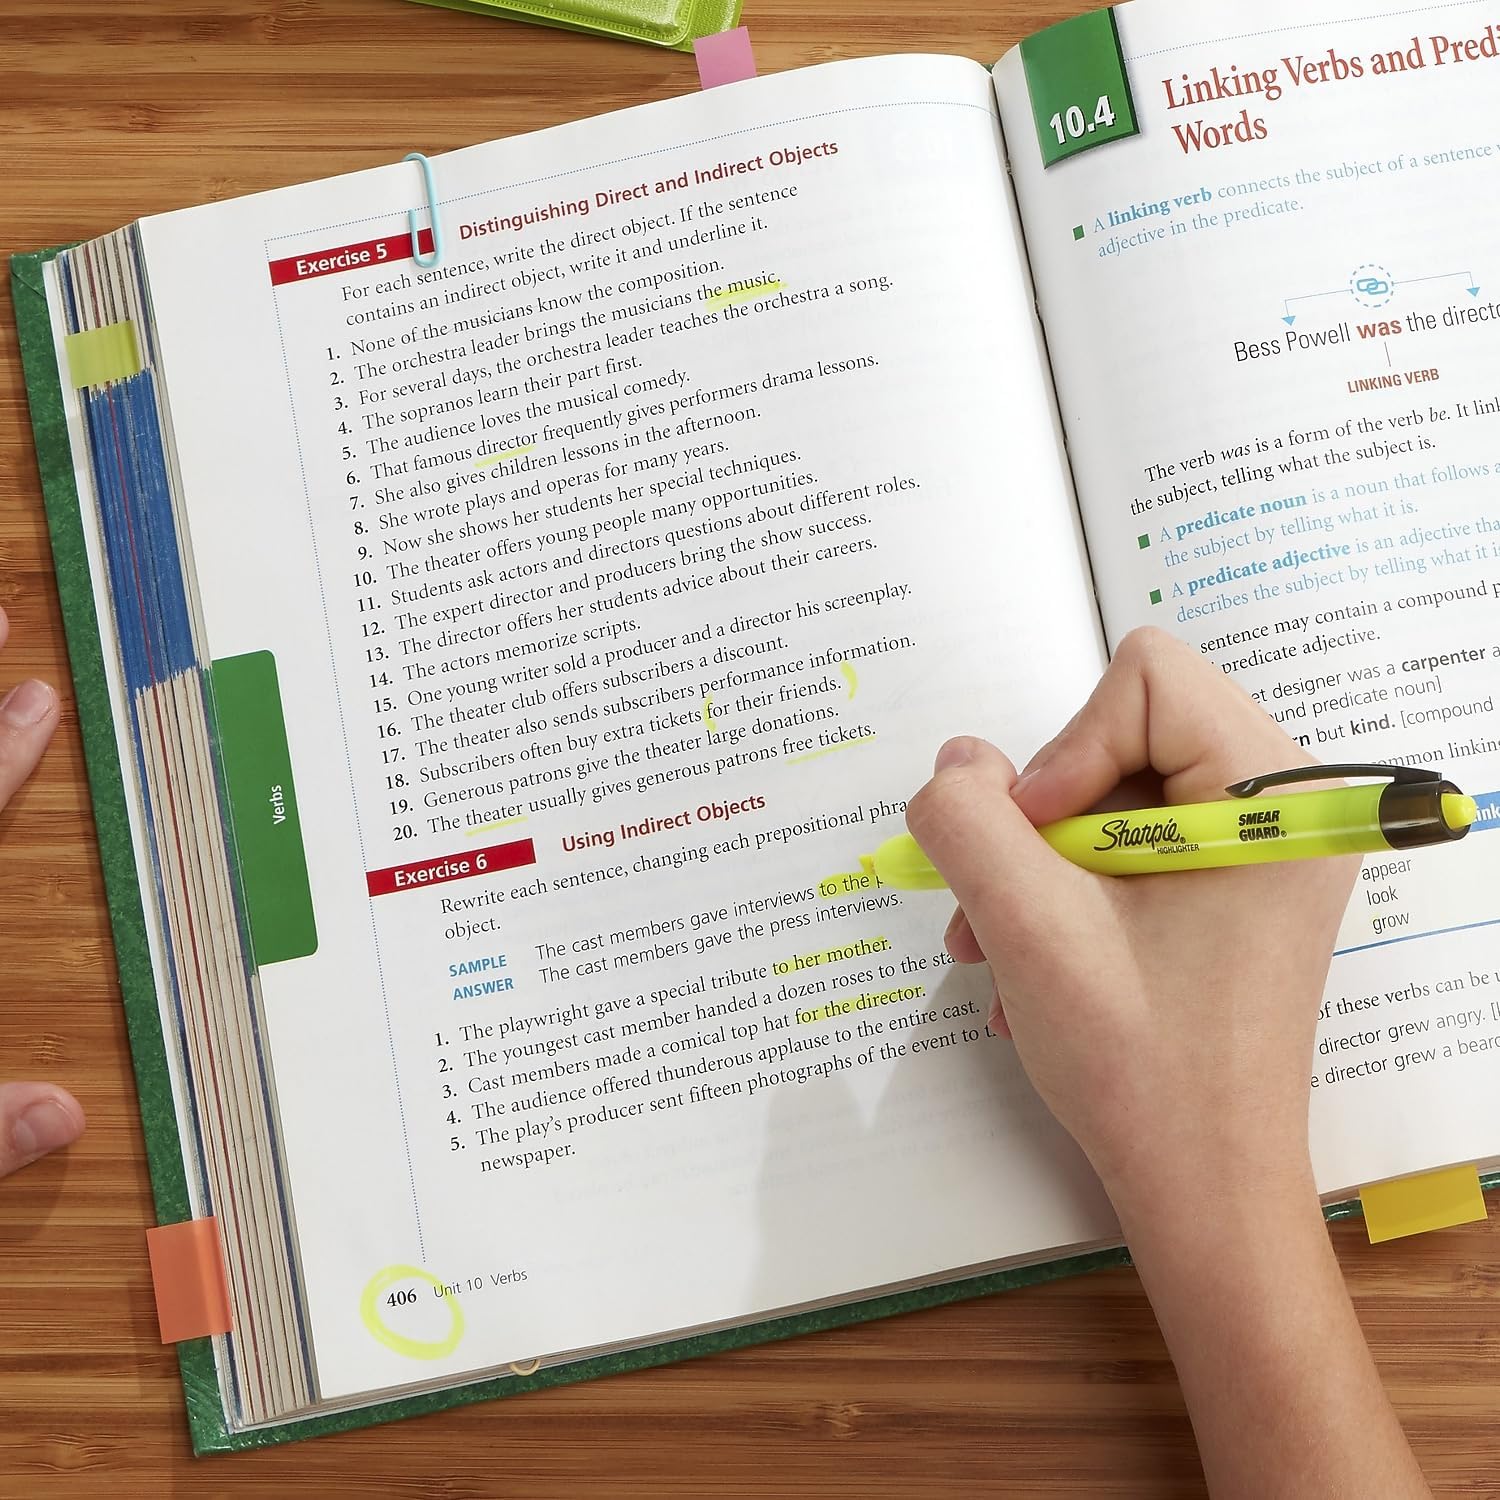 Exercise 5
Distinguishing Direct and Indirect Objects
For each sentence, write the direct object. If the sentence
contains an indirect object, write it and underline it.
1. None of the musicians know the composition.
2. The orchestra leader brings the musicians the music.
3. For several days, the orchestra leader teaches the orchestra a song.
4. The sopranos learn their part first.
5. The audience loves the musical comedy.
6. That famous director frequently gives performers drama lessons.
7. She also gives children lessons in the afternoon.
8. She wrote plays and operas for many years.
9. Now she shows her students her special techniques.
10. The theater offers young people many opportunities.
11. Students ask actors and directors questions about different roles.
12. The expert director and producers bring the show success.
13. The director offers her students advice about their careers.
14. The actors memorize scripts.
15. One young writer sold a producer and a director his screenplay.
16. The theater club offers subscribers a discount.
17. The theater also sends subscribers performance information.
18. Subscribers often buy extra tickets for their friends.
19. Generous patrons give the theater large donations.
20. The theater usually gives generous patrons free tickets.
Exercise 6
Using Indirect Objects
Rewrite each sentence, changing each prepositional
object.
SAMPLE The cast members gave interviews to the
ANSWER The cast members gave the press interviews.
1. The playwright gave a special tribute to her mother.
2. The youngest cast member handed a dozen roses to the
3. Cast members made a comical top hat for the director.
4. The audience offered thunderous applause to the entire cast.
5. The play's producer sent fifteen photographs of the event to
newspaper.
406 Unit 10 Verbs
Verbs
10.4
Linking Verbs and
Words
A linking verb connects the subject of a sentence
adjective in the predicate.
Bess Powell was the
LINKING VERB
The verb was is a form of the verb be. It
the subject, telling what the subject is.
A predicate noun is a noun that follows
the subject by telling what it is.
A predicate adjective is an adjective
describes the subject by telling what it
sentence may contain a compound
predicate adjective.
designer was a carpenter
predicate noun]
but kind. [compound
linking
appear
look
grow
of these verbs can be
director grew angry.
director grew a beard
Sharpie
HIGHLIGHTER
SMEAR
GUARD